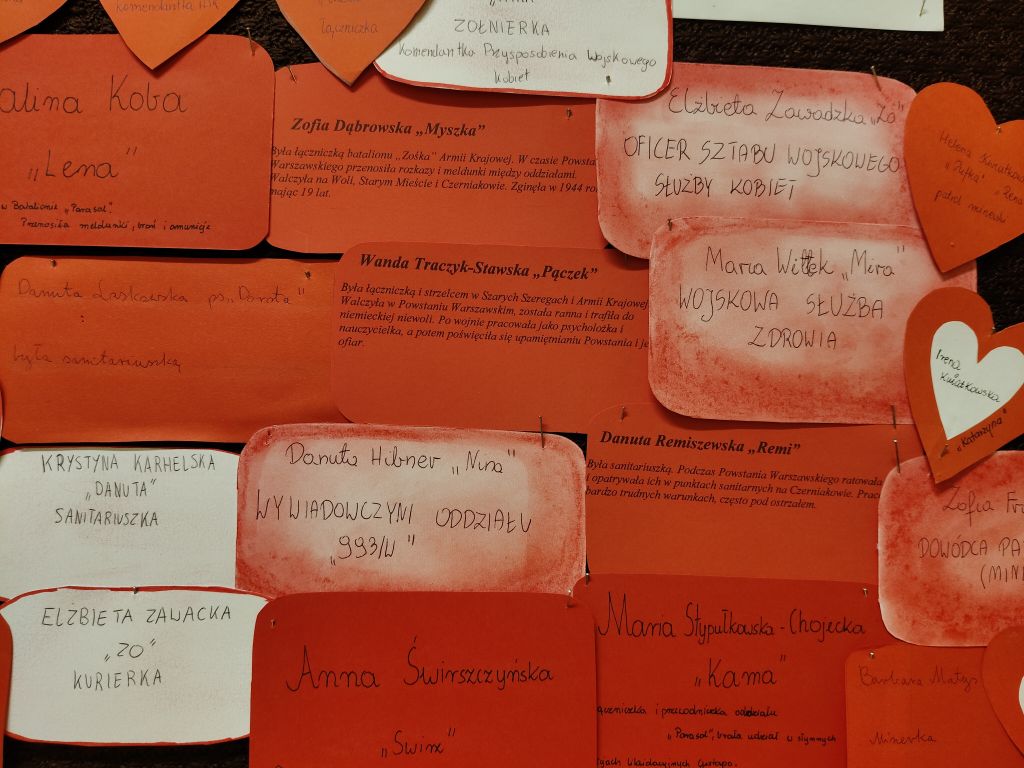 komendantka AK
łączniczka
ŻOŁNIERKA
Komendantka Przysposobienia Wojskowego
Kobiet
alina Koba
„Lena"
w Batalionie „Parasol".
Przenosiła meldunki, broń i amunicję
Zofia Dąbrowska „Myszka"
Była łączniczką batalionu „Zośka" Armii Krajowej. W czasie Powsta
Warszawskiego przenosiła rozkazy i meldunki między oddziałami.
Walczyła na Woli, Starym Mieście i Czerniakowie. Zginęła w 1944 ro
mając 19 lat.
Elżbieta Zawadzka „Zo"
OFICER SZTABU WOJSKOWEGO
SŁUŻBY KOBIET
Helena
patrol minerski
Danuta Laskowska ps „Dorota"
:
była sanitariuszką
Wanda Traczyk-Stawska „Pączek"
Była łączniczką i strzelcem w Szarych Szeregach i Armii Krajowej
Walczyła w Powstaniu Warszawskim, została ranna i trafiła do
niemieckiej niewoli. Po wojnie pracowała jako psycholożka i
nauczycielka, a potem poświęciła się upamiętnianiu Powstania i je
ofiar.
Maria Wittek „Mira"
WOJSKOWA SŁUŻBA
ZDROWIA
Irena
Kwiatkowska
„Katarzyna"
KRYSTYNA KARHELSKA
„DANUTA"
SANITARIUSZKA
Danuta Hibner „Nina"
WYWIADOWCZYNI ODDZIAŁU
„993/W"
Danuta Remiszewska „Remi"
Była sanitariuszką. Podczas Powstania Warszawskiego ratowała
i opatrywała ich w punktach sanitarnych na Czerniakowie. Prac
bardzo trudnych warunkach, często pod ostrzałem.
Zofia Fr
DOWÓDCA PA
(MIN
ELZBIETA ZAWACKA
„ZO"
KURIERKA
Anna Świrszczyńska
„Świr"
Maria Stypułkowska-Chojecka
„Kama"
ączniczka i przewodniczka oddziału
„Parasol", brała udział w słynnych
cjach likwidacyjnych Gestapo.
Barbara Matys
Minerka